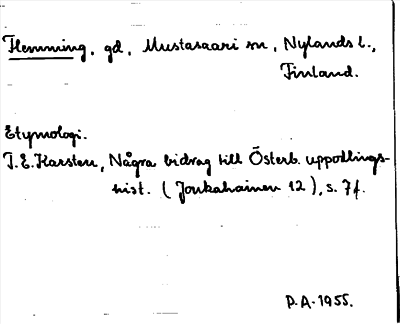 Flemming, gd, Mustasaari sn, Nylands l.,
Finland.
Etymologi.
T.E. Karsten, Några bidrag till Österb. uppodlings-
hist. (Joukahainen 12), s. 7f.
P.A. 1955.